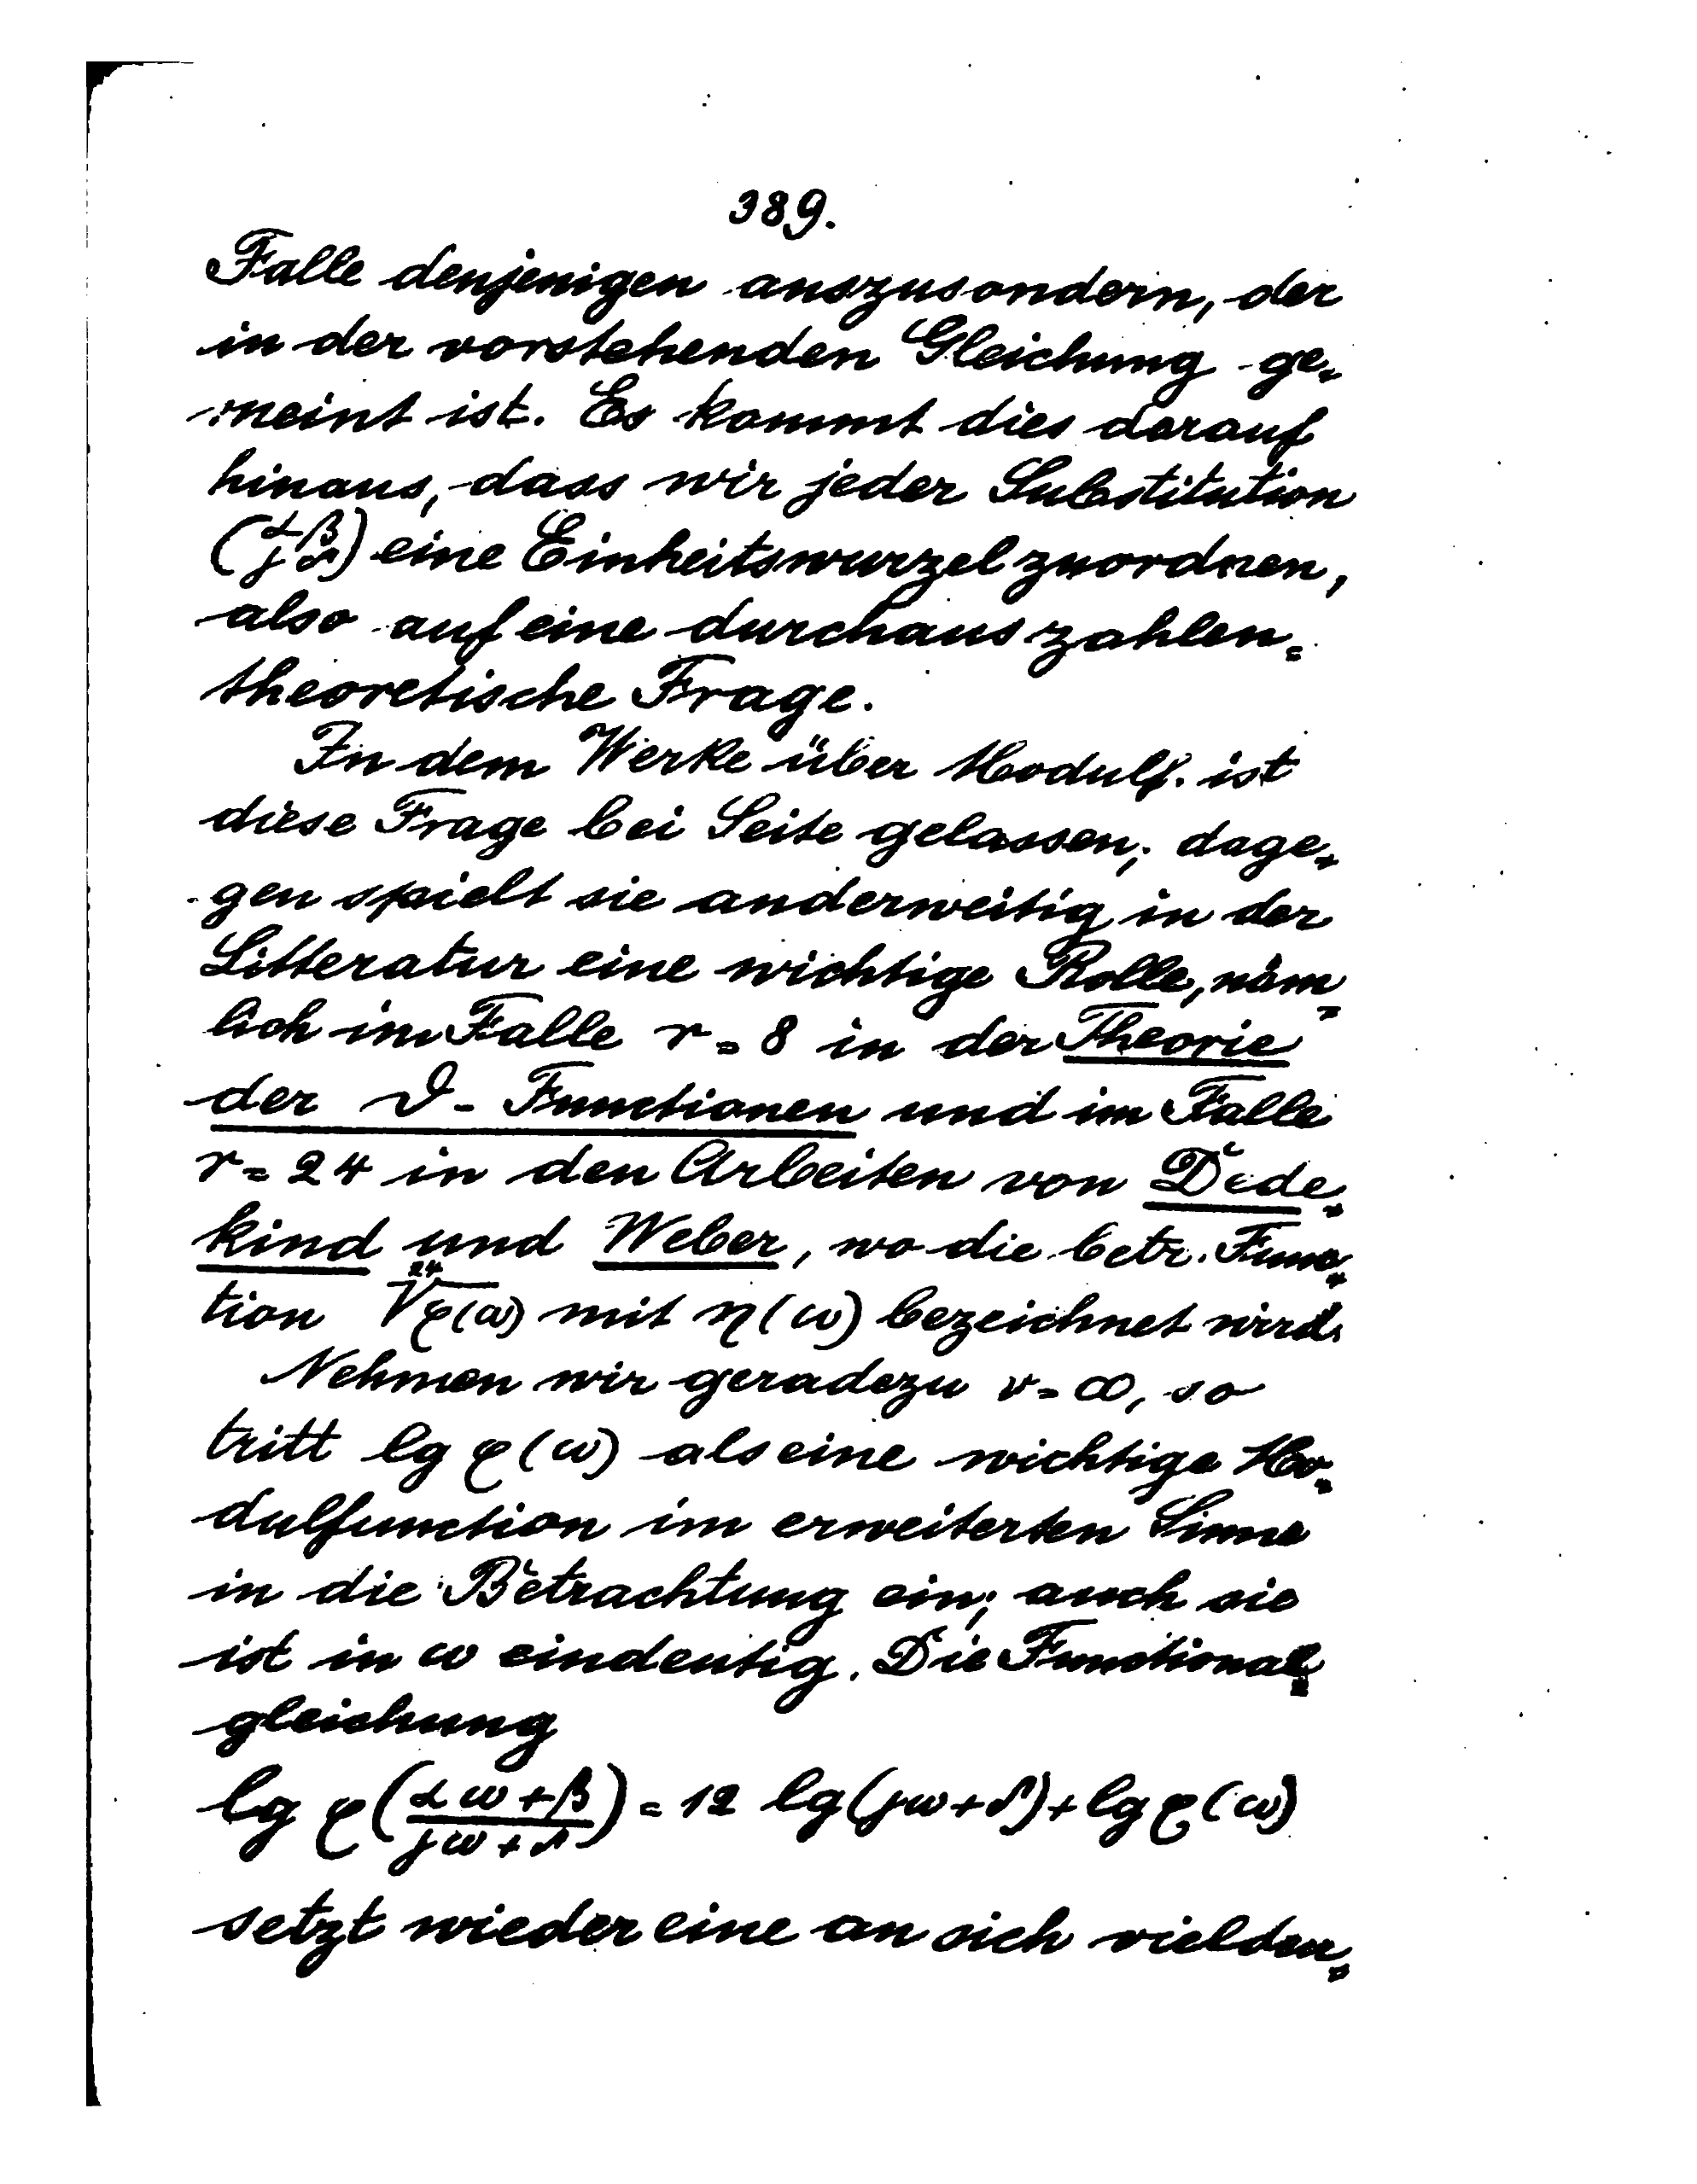 389.
Falle denjenigen auszusondern, der
in der vorstehenden Gleichung ge=
meint ist. Es kommt dies darauf
hinaus, dass wir jeder Substitution
(α β / γ δ) eine Einheitswurzel zuordnen,
also auf eine durchaus zahlen=
theoretische Frage.
In dem Werke über Modulf. ist
diese Frage bei Seite gelassen; dage=
gen spielt sie anderweitig in der
Litteratur eine wichtige Rolle, näm=
lich im Falle r = 8 in der Theorie
der ϑ-Functionen und im Falle
r = 24 in den Arbeiten von Dede=
kind und Weber, wo die betr. Func=
tion ²⁴√φ(ω) mit η(ω) bezeichnet wird.
Nehmen wir geradezu r = ∞, so
tritt lg φ(ω) als eine wichtige Mo=
dulfunction im erweiterten Sinne
in die Betrachtung ein; auch sie
ist in ω eindeutig. Die Functional=
gleichung
lg φ((αω+β)/(γω+δ)) = 12 lg(γω+δ) + lg φ(ω)
setzt wieder eine an sich vieldeu=